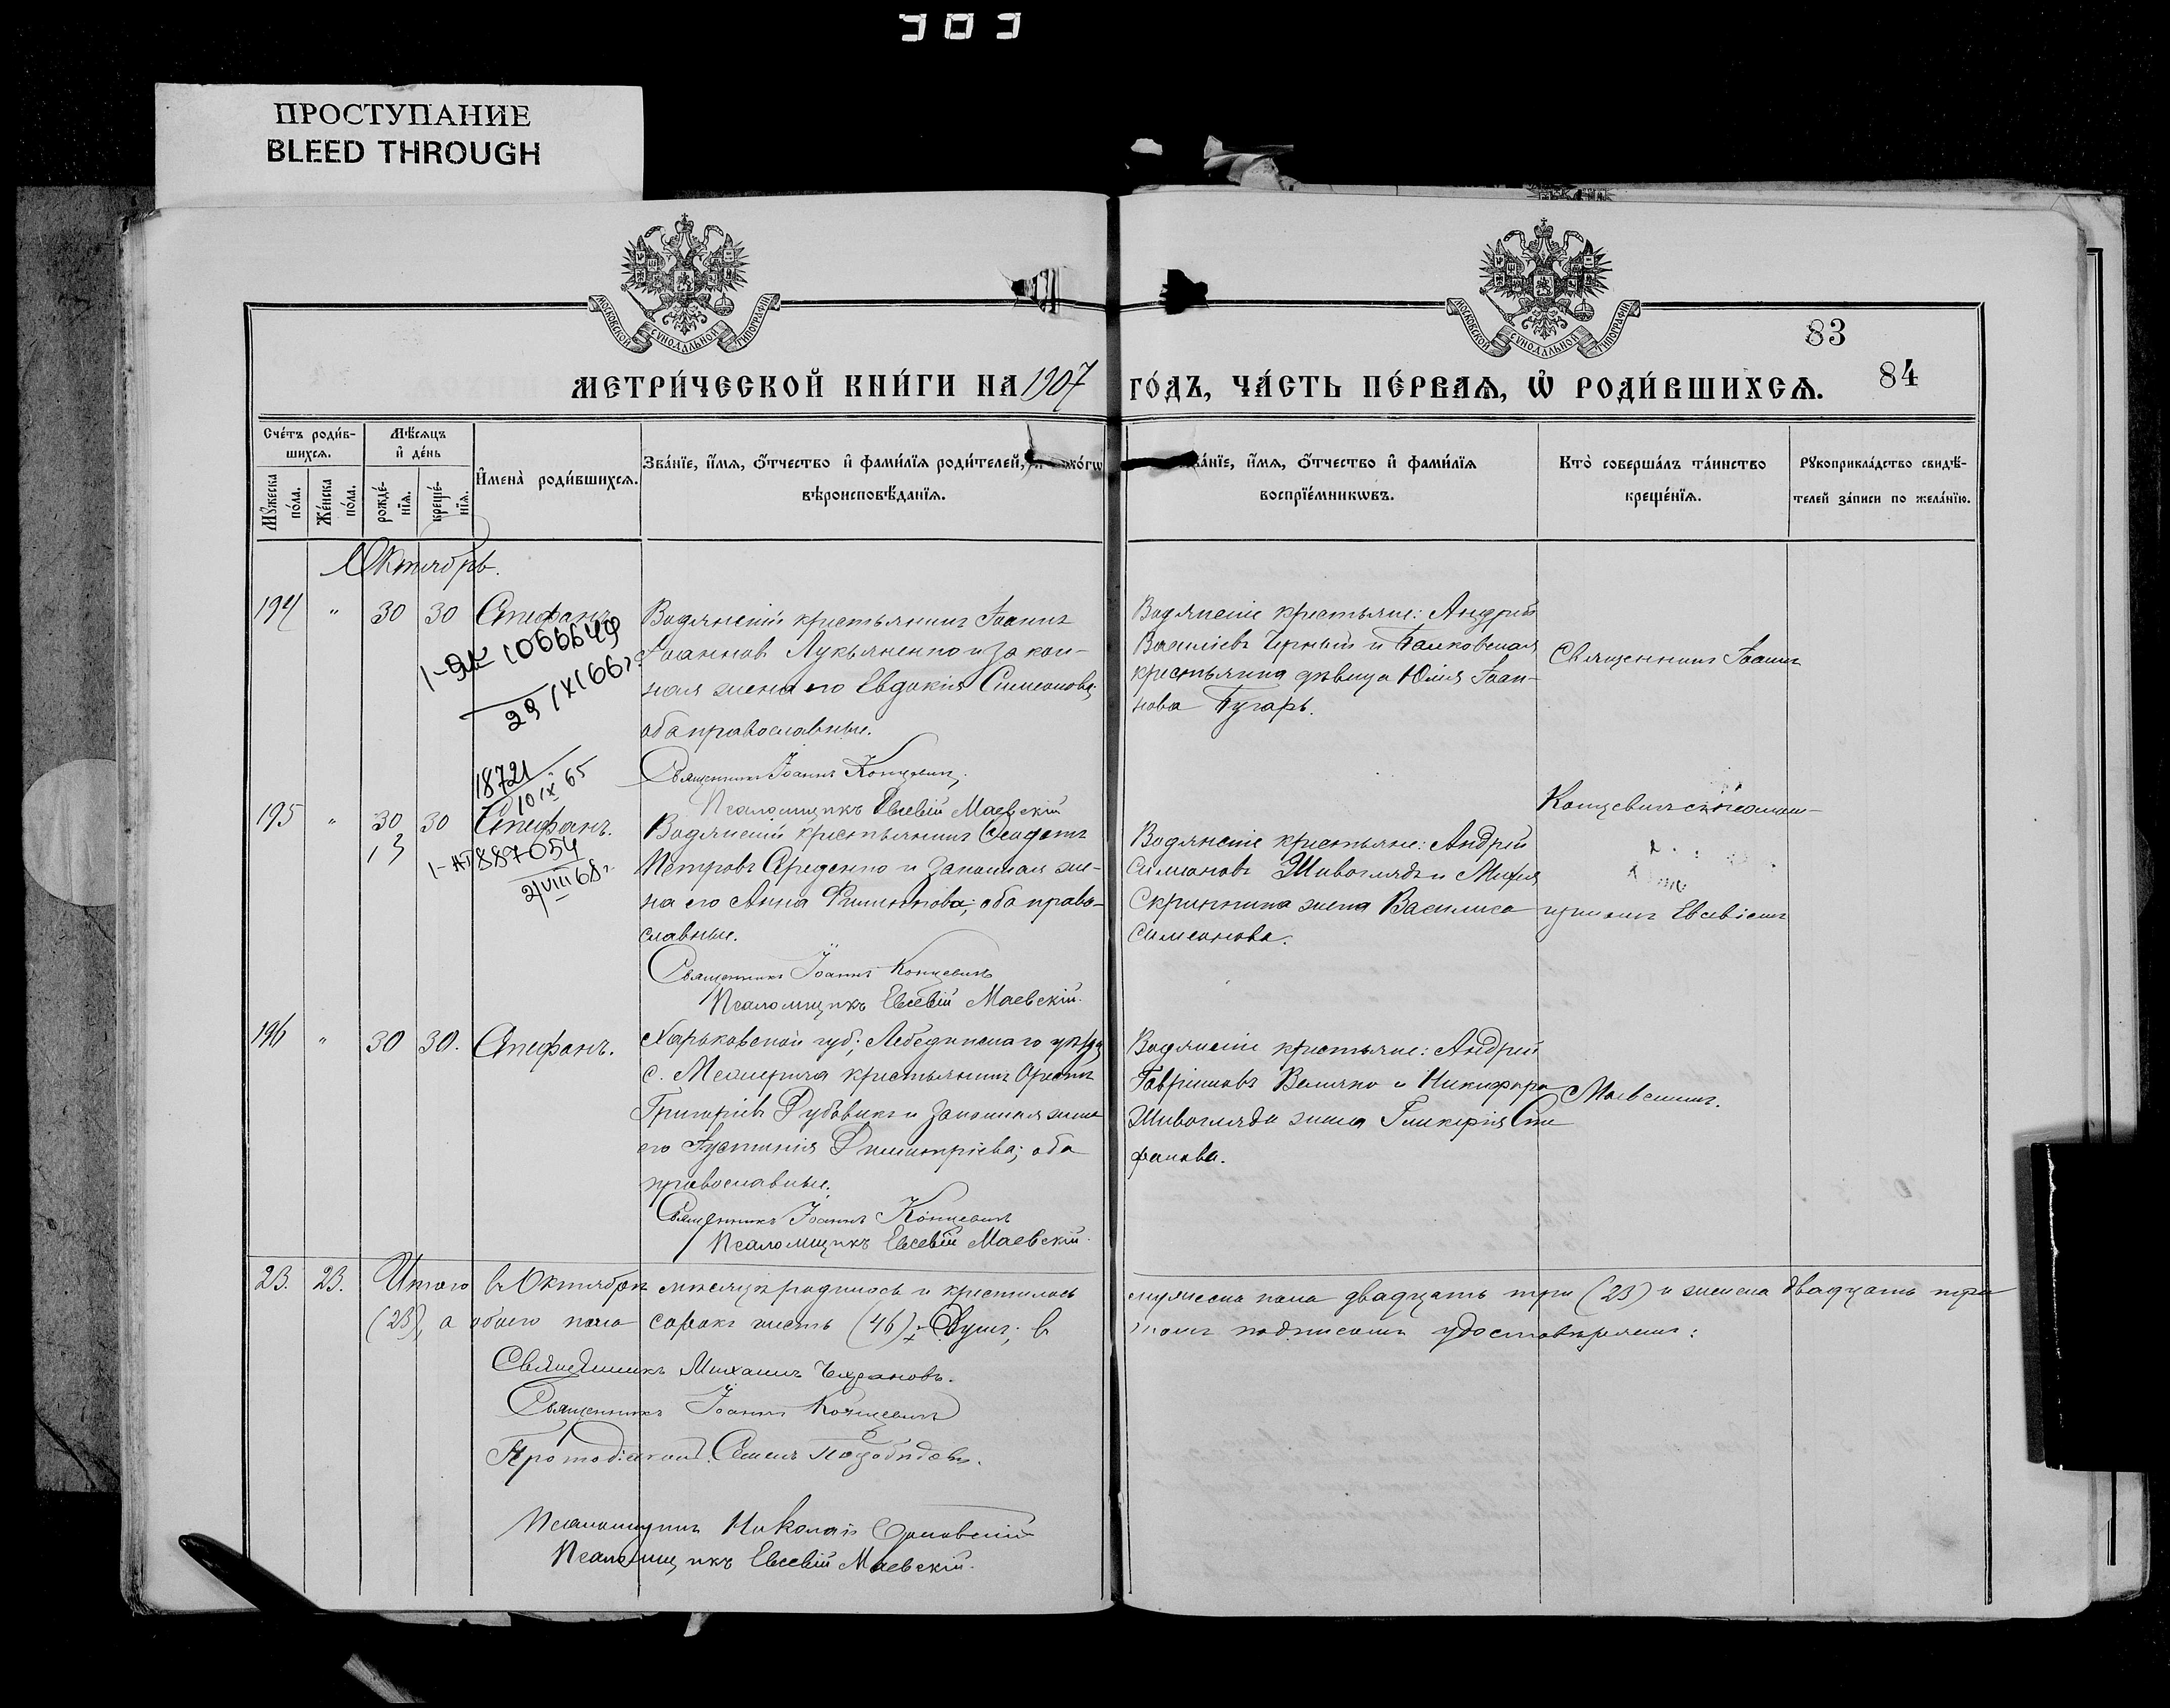 303
ПРОСТУПАНИЕ
BLEED THROUGH
МОСКОВСКОЙ СѴНОДАЛЬНОЙ ТИПОГРАФІИ
МОСКОВСКОЙ СѴНОДАЛЬНОЙ ТИПОГРАФІИ
83
84
МЕТРИ́ЧЕСКОЙ КНИ́ГИ НА 1907 ГО́ДЪ, ЧА́СТЬ ПЕ́РВАѦ, Ѡ҆ РОДИ́ВШИХСѦ.
Сче́тъ роди́в-
шихсѧ.
Мꙋжеска по́ла.
Же́нска по́ла.
Мѣ́сѧцъ
и҆ де́нь
рожде́-
нїѧ.
креще́-
нїѧ.
И҆мена̀ роди́вшихсѧ.
Зва́нїе, и҆́мѧ, ѻ҆́тчество и҆ фами́лїѧ роди́телей,
вѣроисповѣ́данїѧ.
ва́нїе, и҆́мѧ, ѻ҆́тчество и҆ фами́лїѧ
воспрїе́мникѡвъ.
Кто̀ соверша́лъ та́инство
креще́нїѧ.
Рꙋкоприкла́дство свидѣ́-
телей за́писи по жела́нїю.
Октябрь.
194 " 30 30 Стефанъ
1-ЯЕ 1066649
29/IX 66 г.
Водянскій крестьянинъ Іоаннъ
Іоанновъ Лукьяненко и закон-
ная жена его Евдокія Симеонова;
оба православные.
Священникъ Іоаннъ Концевичъ,
Псаломщикъ Евсевій Маевскій
Водянскіе крестьяне: Андрей
Васильевъ Черный и
крестьянка дѣвица Юлія Іоан-
нова Бугаръ.
Священникъ Іоаннъ
18721
10 IX 65
195 " 30 30 Стефанъ.
13
887054
2/VIII 68 г.
Водянскій крестьянинъ Феодотъ
Петровъ Середенко и законная же-
на его Анна Филиппова; оба право-
славные.
Священникъ Іоаннъ Концевичъ
Псаломщикъ Евсевій Маевскій.
Водянскіе крестьяне: Андрей
Симеоновъ Живоглядъ и
жена Василиса
Симеонова.
Концевичъ съ псалом-
щикомъ Евсевіемъ
196 " 30 30. Стефанъ.
Харьковской губ., Лебединскаго уѣзда
с. Межирича крестьянинъ Орестъ
Григоріевъ Дубовикъ и законная жена
его Іустинія Димитріева; оба
православные.
Священникъ Іоаннъ Концевичъ
Псаломщикъ Евсевій Маевскій.
Водянскіе крестьяне: Андрей
Гавриловъ Величко и Никифора
Живогляда жена Гликерія Сте
фанова.
Маевскимъ.
23. 23. Итого въ Октябрѣ мѣсяцѣ родилось и крестилось мужеска пола двадцать три (23) и женска двадцать три
(23), а обоего пола сорокъ шесть (46) душъ; въ томъ подписомъ удостовѣряемъ:
Священникъ Михаилъ
Священникъ Іоаннъ Концевичъ
Протодіаконъ Семенъ
Псаломщикъ Николай
Псаломщикъ Евсевій Маевскій.